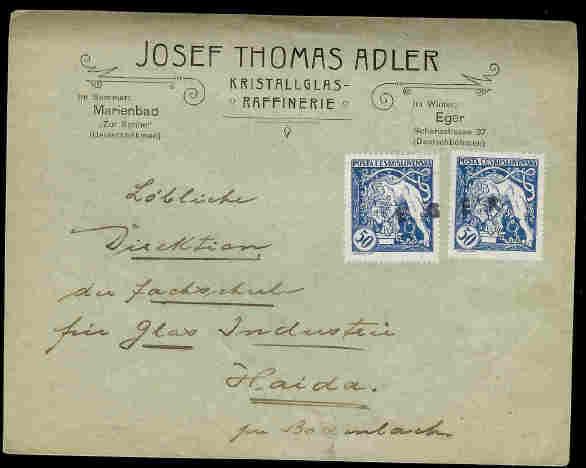 JOSEF THOMAS ADLER
KRISTALLGLAS-
RAFFINERIE
Im Sommer:
Marienbad
"Zur Sonne"
(Deutschböhmen)
Im Winter:
Eger
Schanzstrasse 37
(Deutschböhmen)
POŠTA ČESKOSLOVENSKÁ
50
POŠTA ČESKOSLOVENSKÁ
50
EGER
Löbliche
Direktion
der Fachschule
für Glas Industrie
Haida.
per Bodenbach